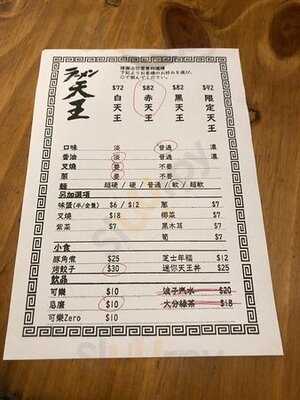 ラーメン
天王
$72 $82 $82 $92
白天王 赤天王 黒天王 限定天王
口味 淡 普通 濃
香油 淡 普通 濃
叉燒 要 不要
葱 要 不要
麵 超硬 / 硬 / 普通 / 軟 / 超軟
另加選項
味蛋(半/全隻) $6 / $12 葱 $7
叉燒 $18 椰菜 $7
紫菜 $7 黒木耳 $7
筍 $7
小食
豚角煮 $25 芝士年糕 $12
烤餃子 $30 迷你天王丼 $25
飲品
可樂 $10 波子汽水 $20
忌廉 $10 大分綠茶 $18
可樂Zero $10